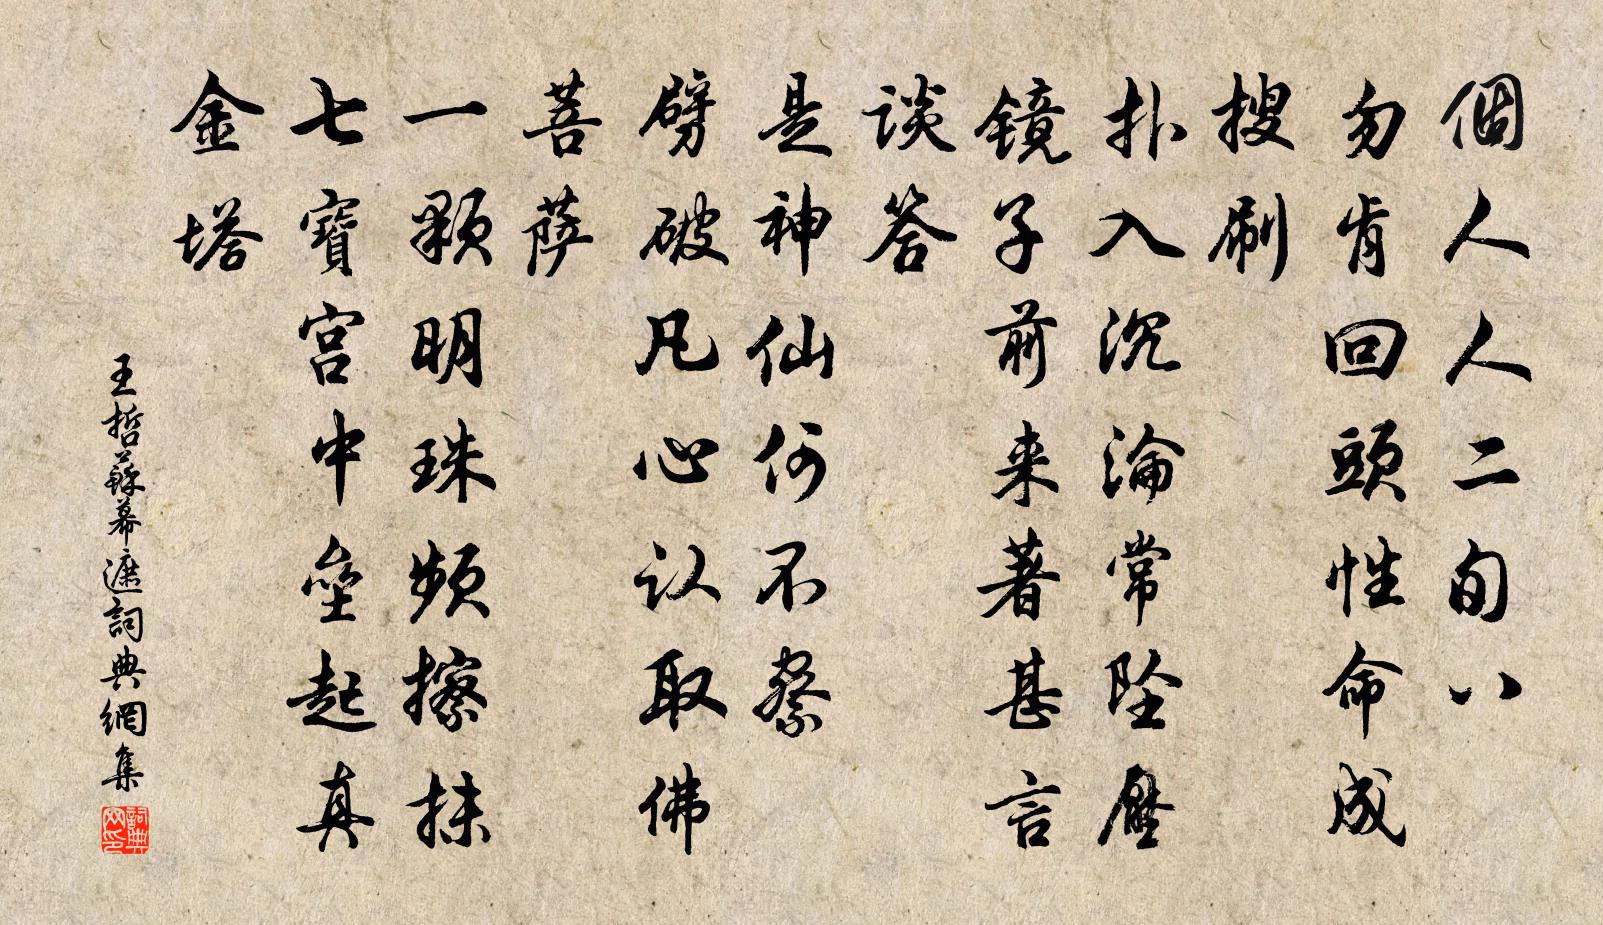 個人人二旬八
勿肯回頭性命成
搜刷
扑入沉淪常坠壓
镜子前来著甚言
谈答
是神仙何不察
劈破凡心认取佛
菩萨
一颗明珠频擦抹
七寶宫中垒起真
金塔
王哲蘇幕遮詞典網集
詞典网印